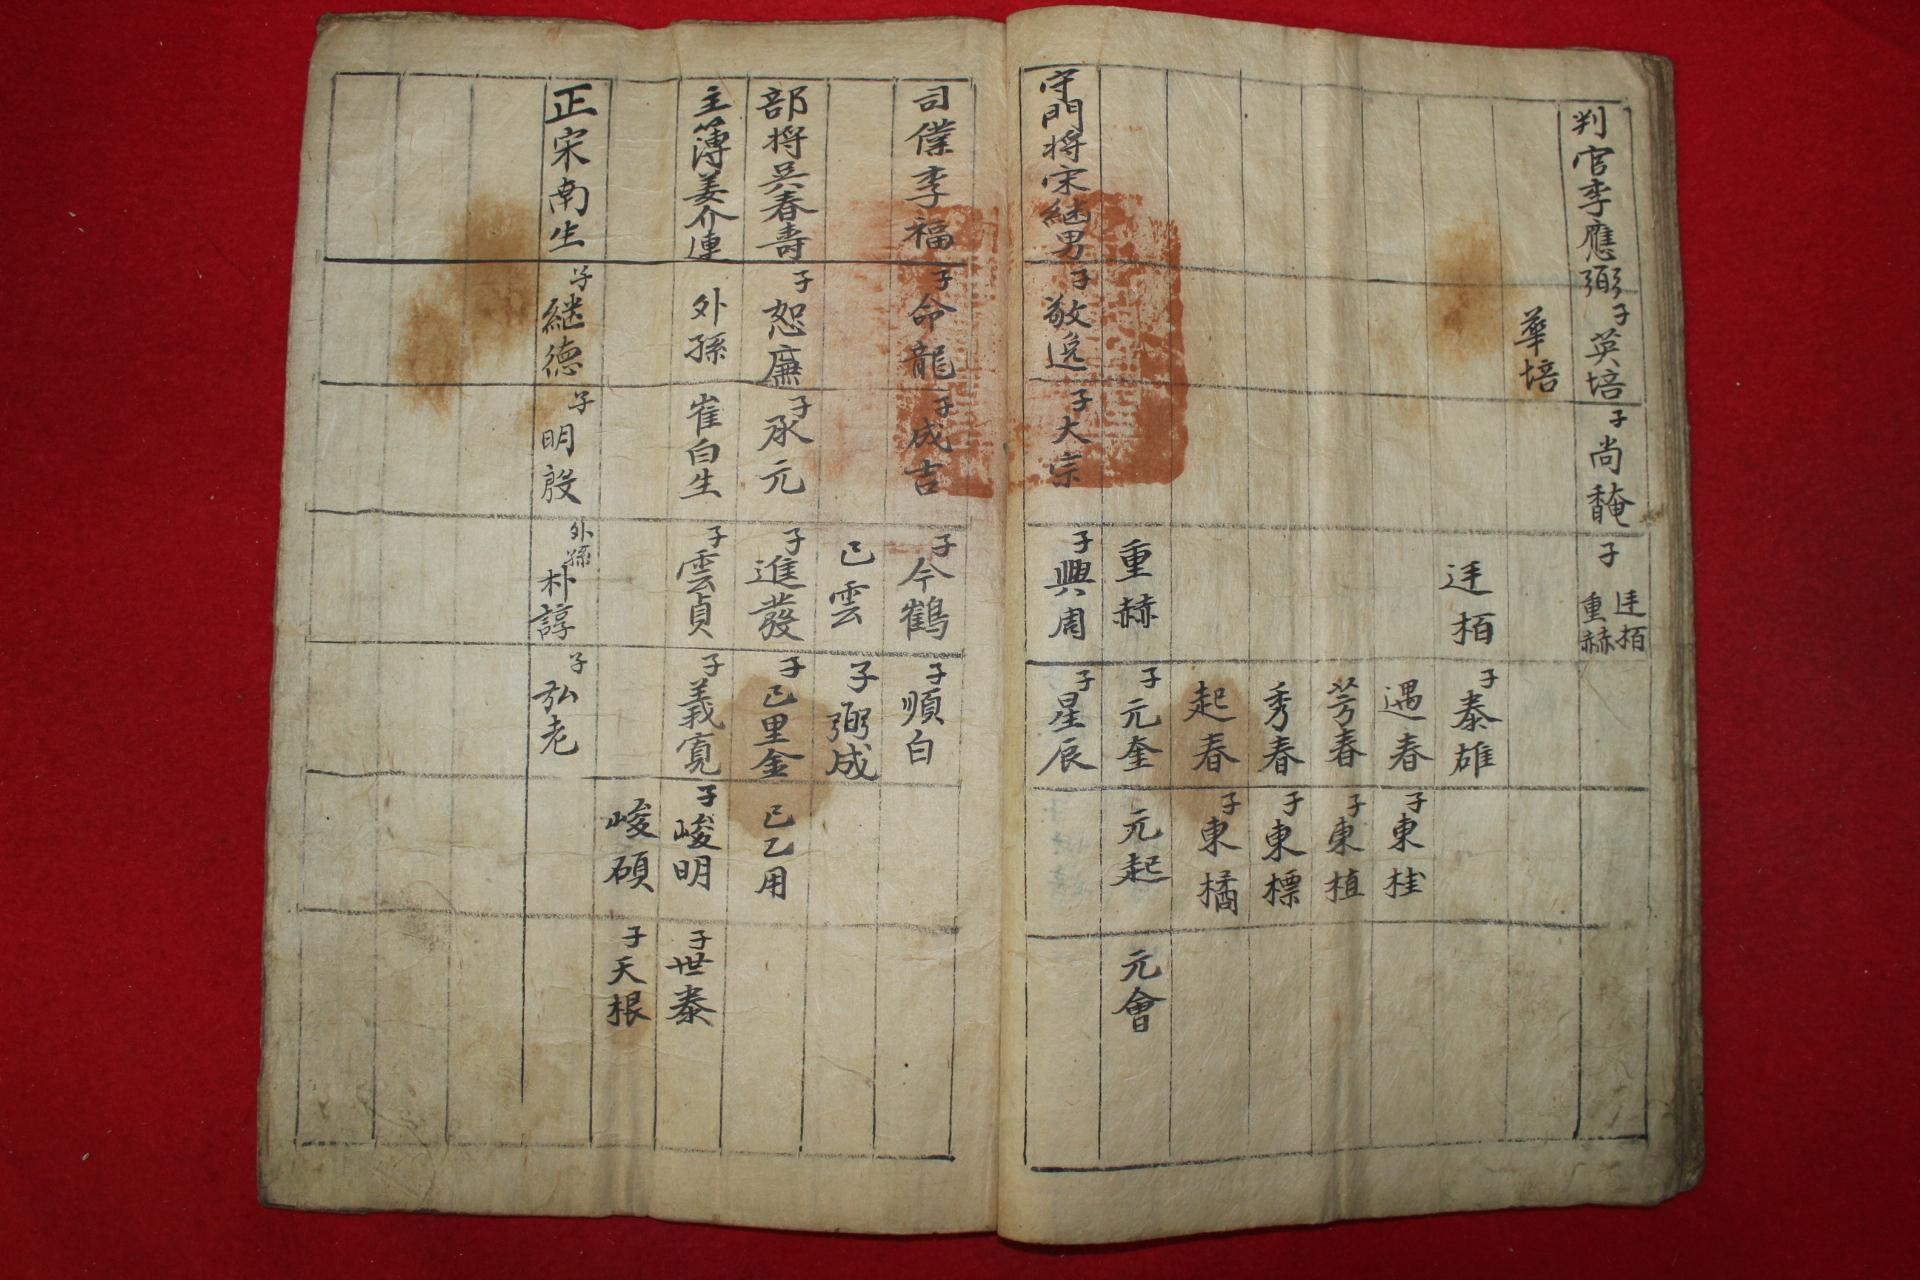 判官李應弼 子英培 子尚馣 子迋栢 重赫
華培
迋栢 子泰雄
遇春 子東桂
芳春 子東植
秀春 子東標
起春 子東橘
重赫 子元奎 元起 元會
守門將宋継男 子敬逸 子大宗 子興周 子星辰
司僕李福 子命龍 子成吉 子今鶴 子順白
己雲 子弼成
部將吳春壽 子恕廉 子承元 子進發 子己里金 己乙用
主簿姜介連 外孫崔白生 子雲貞 子義寬 子峻明 子世泰
峻碩 子天根
正宋南生 子継德 子明殷 外孫朴諄 子弘老